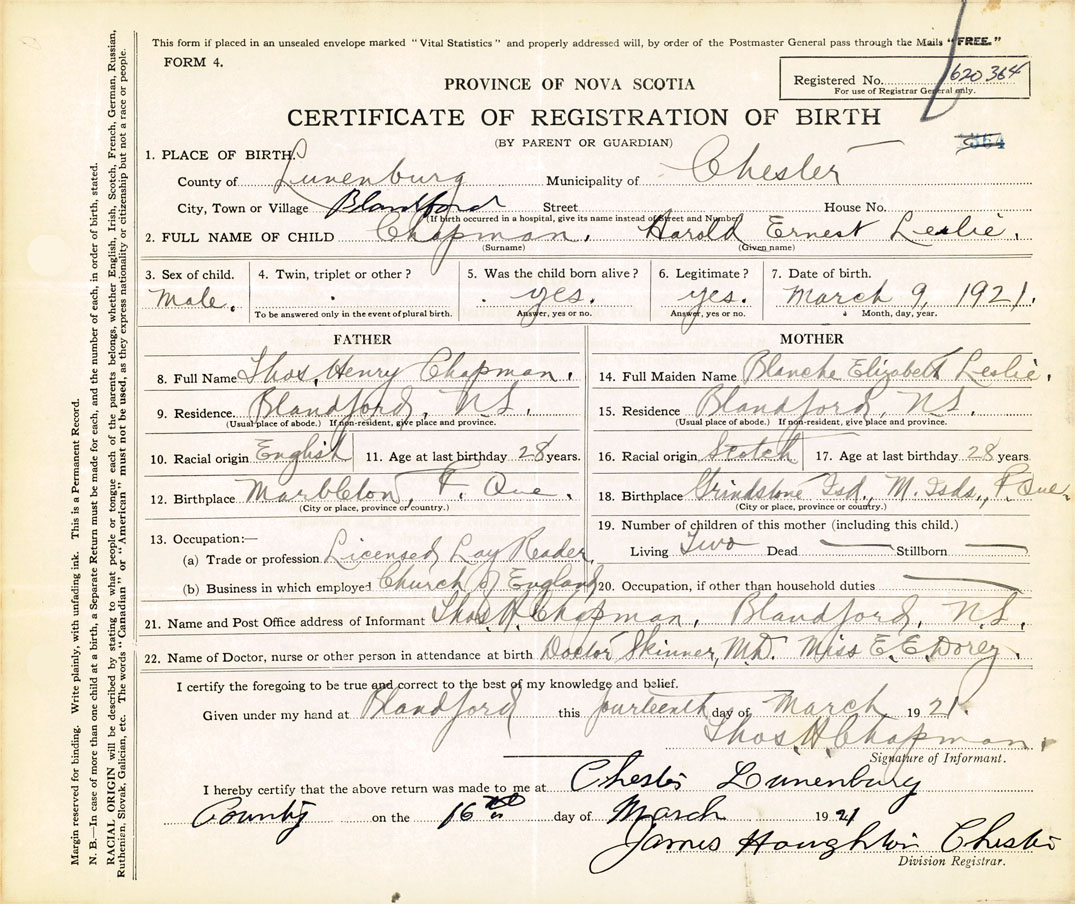 This form if placed in an unsealed envelope marked "Vital Statistics" and properly addressed will, by order of the Postmaster General pass through the Mails "FREE."
FORM 4.
Registered No. 620364
For use of Registrar General only.
PROVINCE OF NOVA SCOTIA
CERTIFICATE OF REGISTRATION OF BIRTH
(BY PARENT OR GUARDIAN)
364
1. PLACE OF BIRTH.
County of Lunenburg Municipality of Chester
City, Town or Village Blandford Street House No.
If birth occurred in a hospital, give its name instead of Street and Number
2. FULL NAME OF CHILD Chapman. Harold Ernest Leslie.
(Surname) (Given name)
3. Sex of child. 4. Twin, triplet or other? 5. Was the child born alive? 6. Legitimate? 7. Date of birth.
Male. yes. yes. March 9, 1921.
To be answered only in the event of plural birth. Answer, yes or no. Answer, yes or no. Month, day, year.
FATHER MOTHER
8. Full Name Thos. Henry Chapman. 14. Full Maiden Name Blanche Elizabeth Leslie.
9. Residence. Blandford, N.S. 15. Residence Blandford, N.S.
(Usual place of abode.) If non-resident, give place and province. (Usual place of abode.) If non-resident, give place and province.
10. Racial origin English 11. Age at last birthday 28 years. 16. Racial origin Scotch 17. Age at last birthday 28 years.
12. Birthplace Marbleton, P. Que. 18. Birthplace Grindstone Isd., M. Isds., P. Que.
(City or place, province or country.) (City or place, province or country.)
13. Occupation:— 19. Number of children of this mother (including this child.)
(a) Trade or profession Licensed Lay Reader Living Two Dead — Stillborn —
(b) Business in which employed Church of England 20. Occupation, if other than household duties —
21. Name and Post Office address of Informant Thos. H. Chapman, Blandford, N.S.
22. Name of Doctor, nurse or other person in attendance at birth Doctor Skinner, M.D. Miss E. E. Dorey.
I certify the foregoing to be true and correct to the best of my knowledge and belief.
Given under my hand at Blandford this fourteenth day of March 1921.
Thos. H. Chapman.
Signature of Informant.
I hereby certify that the above return was made to me at Chester Lunenburg
County on the 16 day of March 1921
James Houghton Chester
Division Registrar.
Margin reserved for binding. Write plainly, with unfading ink. This is a Permanent Record.
N. B.—In case of more than one child at a birth, a Separate Return must be made for each, and the number of each, in order of birth, stated.
RACIAL ORIGIN will be described by stating to what people or tongue each of the parents belongs, whether English, Irish, Scotch, French, German, Russian,
Ruthenian, Slovak, Galician, etc. The words "Canadian" or "American" must not be used, as they express nationality or citizenship but not a race or people.